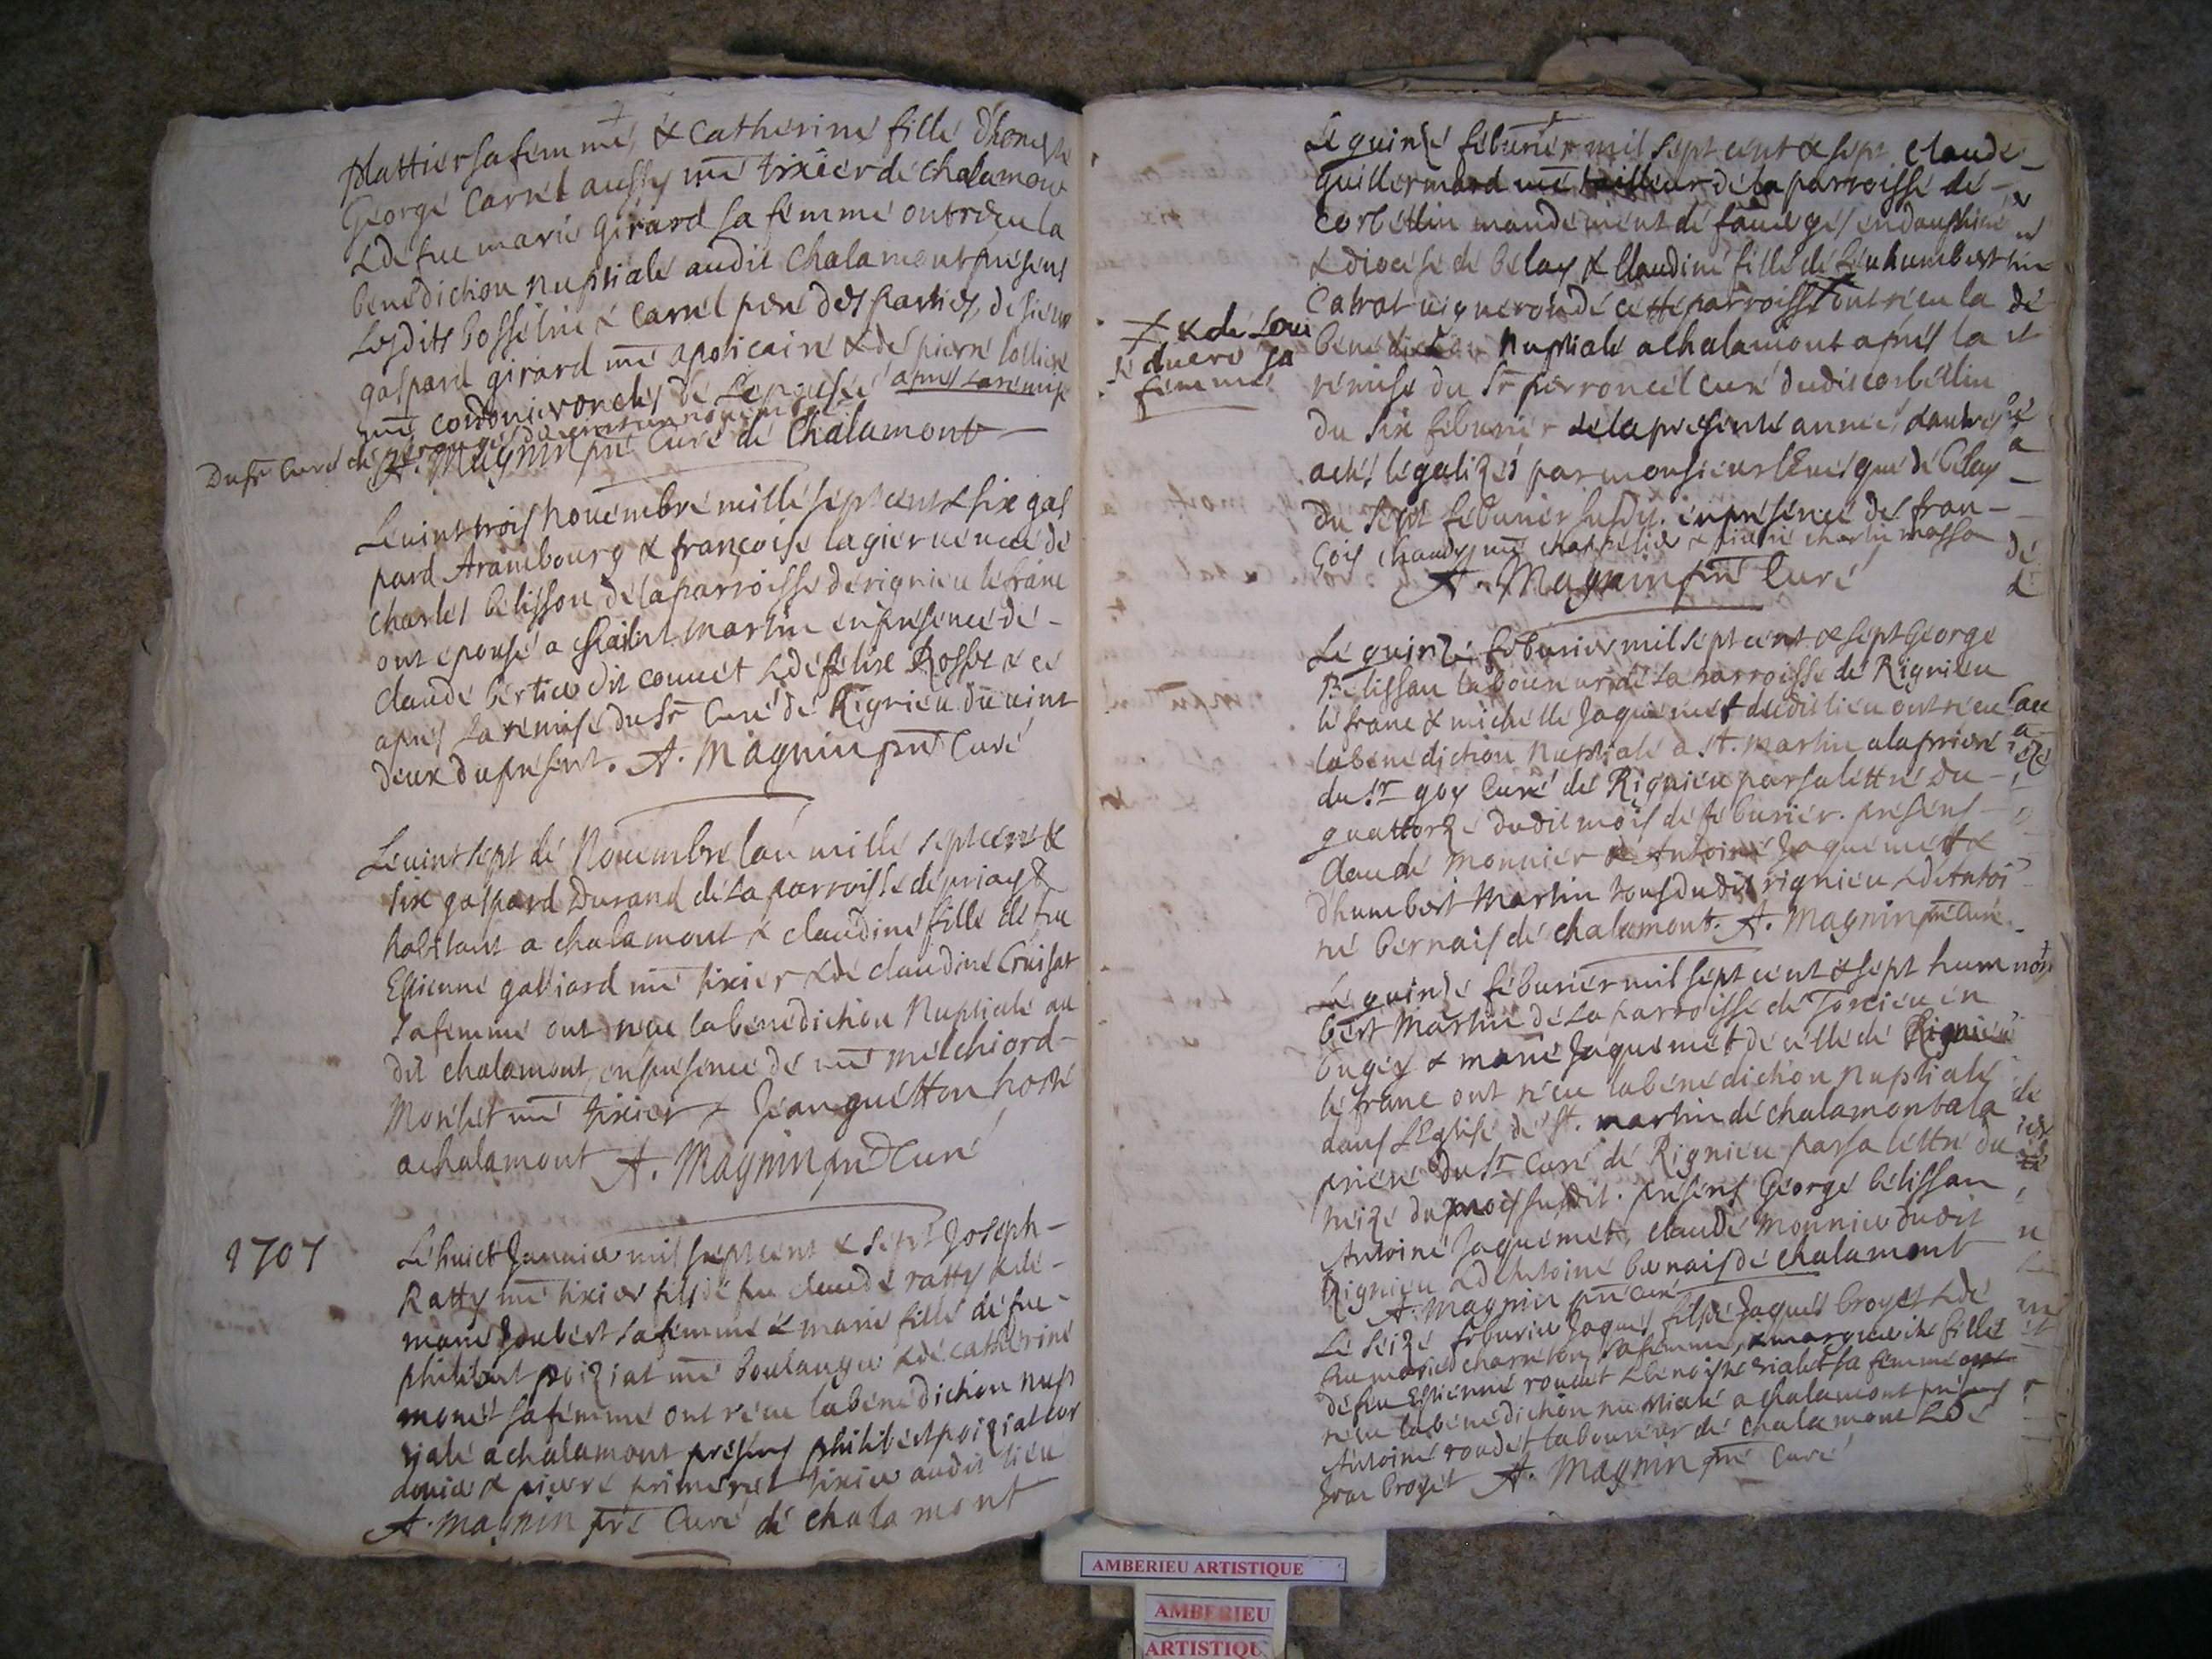 plattier sa femme, & Catherine fille d'honeste
George Carrel aussy me tixier de Chalamont
& de fue marie Girard sa femme ont receu la
benediction nuptiale audit Chalamont presens
lesdits bosselin & Carrel pere des parties, de sieur
gaspard girard me apoticaire & de pierre
me cordonier oncles de l'epousée apres la remise
du sr Curé de
A. Magnin pre Curé de Chalamont
Le vint trois novembre mille sept cent & six gas
pard Arambourg & françoise lagier veuve de
Charles belisson de la parroisse de rignieu le franc
ont epousé a St martin en presence de
claude bertier dit comet & de felix Rosset & ce
apres la remise du Sr Curé de Rignieu du vint
deux du present. A. Magnin pre Curé
Le vint sept de Novembre lan mille sept cent &
six gaspard Durand de la parroisse de priay &
habitant a chalamont & claudine fille de fue
Estienne galliard me tixier & de claudine Cruisat
sa femme ont receu la benediction Nuptiale au
dit chalamont, en presence de me melchiord
Monset me tixier & Jean guetton hoste
a chalamont A. Magnin pre Curé
1707
Le huict Janvier mil sept cent & sept Joseph
Ratty me tixier fils de fue claude ratty & de
marie Joubert sa femme & marie fille de fue
philibert poiziat me boulanger & de catherine
monet sa femme ont receu la benediction nup
tiale a chalamont presens philibert poiziat cor
donier & pierre trimeret tixier audit lieu
A. Magnin pre Curé de chalamont
Le quinze feburier mil sept cent & sept claude
Guillermard me tailleur de la parroisse de
Corbellin mandement de faverges en dauphiné
& diocese de belay & Claudine fille de feu humbert
Cabrat vigneron de cette parroisse ont receu la
X & de
sa
femme
benediction Nuptiale a chalamont apres la
remise du Sr perroncel curé dudit corbellin
du six feburier de la presente année, & autres
actes legalizés par monsieur l'Evesque de belay
du sept feburier susdit. en presence de fran-
çois chaudy me chappelier & pierre charlin masson
A. Magnin pre Curé
Le quinze feburier mil sept cent & sept George
Belissan laboureur de la parroisse de Rignieu
le franc & michelle Jaquemet dudit lieu ont receu
la benediction Nuptiale a St. martin a la priere
du Sr goy Curé de Rignieu par sa lettre du
quattorze dudit mois de feburier. presens
claude monnier & Antoine Jaquemet &
d'humbert Martin tous dudit rignieu & d'Antoi
ne bernais de chalamont. A. Magnin pre Curé
Le quinze feburier mil sept cent & sept hum
bert Martin de la parroisse de Torcieu en
bugey & marie Jaquemet de celle de Rignieu
le franc ont receu la benediction nuptiale
dans l'Eglise de St. martin de chalamont a la
priere du Sr Curé de Rignieu par sa lettre du
treize du mois susdit. presens George belissan
Antoine Jaquemet, claude monnier dudit
Rignieu & d'Antoine bernais de chalamont
A. Magnin pre Curé
Le seize feburier Jaques fils de Jaques broyet & de
fue marie charreton sa femme, & marguerite fille
de feu Estienne roudet & benoiste rialet sa femme ont
receu la benediction nuptiale a chalamont presens
Antoine roudet laboureur de chalamont & de
Jean broyet A. Magnin pre Curé
AMBERIEU ARTISTIQUE
AMBERIEU
ARTISTIQU